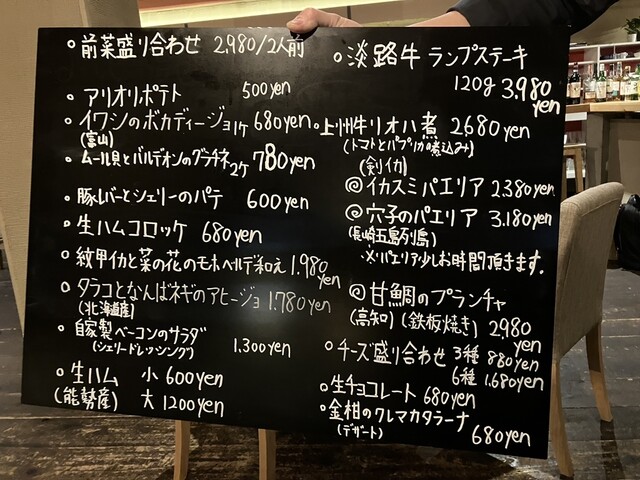 ○前菜盛り合わせ 2,980/2人前
○アリオリポテト 500yen
○イワシのボカディージョ1ケ 680yen
(富山)
○ムール貝とバルデオンのグラチネ2ケ 780yen
○豚レバーとシェリーのパテ 600yen
○生ハムコロッケ 680yen
○紋甲イカと菜の花のモホベルデ和え 1,980yen
○タラコとなんばネギのアヒージョ 1,780yen
(北海道産)
○自家製ベーコンのサラダ 1,300yen
(シェリードレッシング)
○生ハム 小 600yen
(能勢産) 大 1200yen
○淡路牛 ランプステーキ
120g 3,980yen
○上州牛リオハ煮 2680yen
(トマトとパプリカ煮込み)
(剣イカ)
◎イカスミパエリア 2,380yen
◎穴子のパエリア 3,180yen
(長崎五島列島)
・※パエリア少しお時間頂きます。
◎甘鯛のプランチャ
(高知)(鉄板焼き) 2,980yen
○チーズ盛り合わせ 3種 880yen
6種 1,680yen
○生チョコレート 680yen
○金柑のクレマカタラーナ
(デザート) 680yen